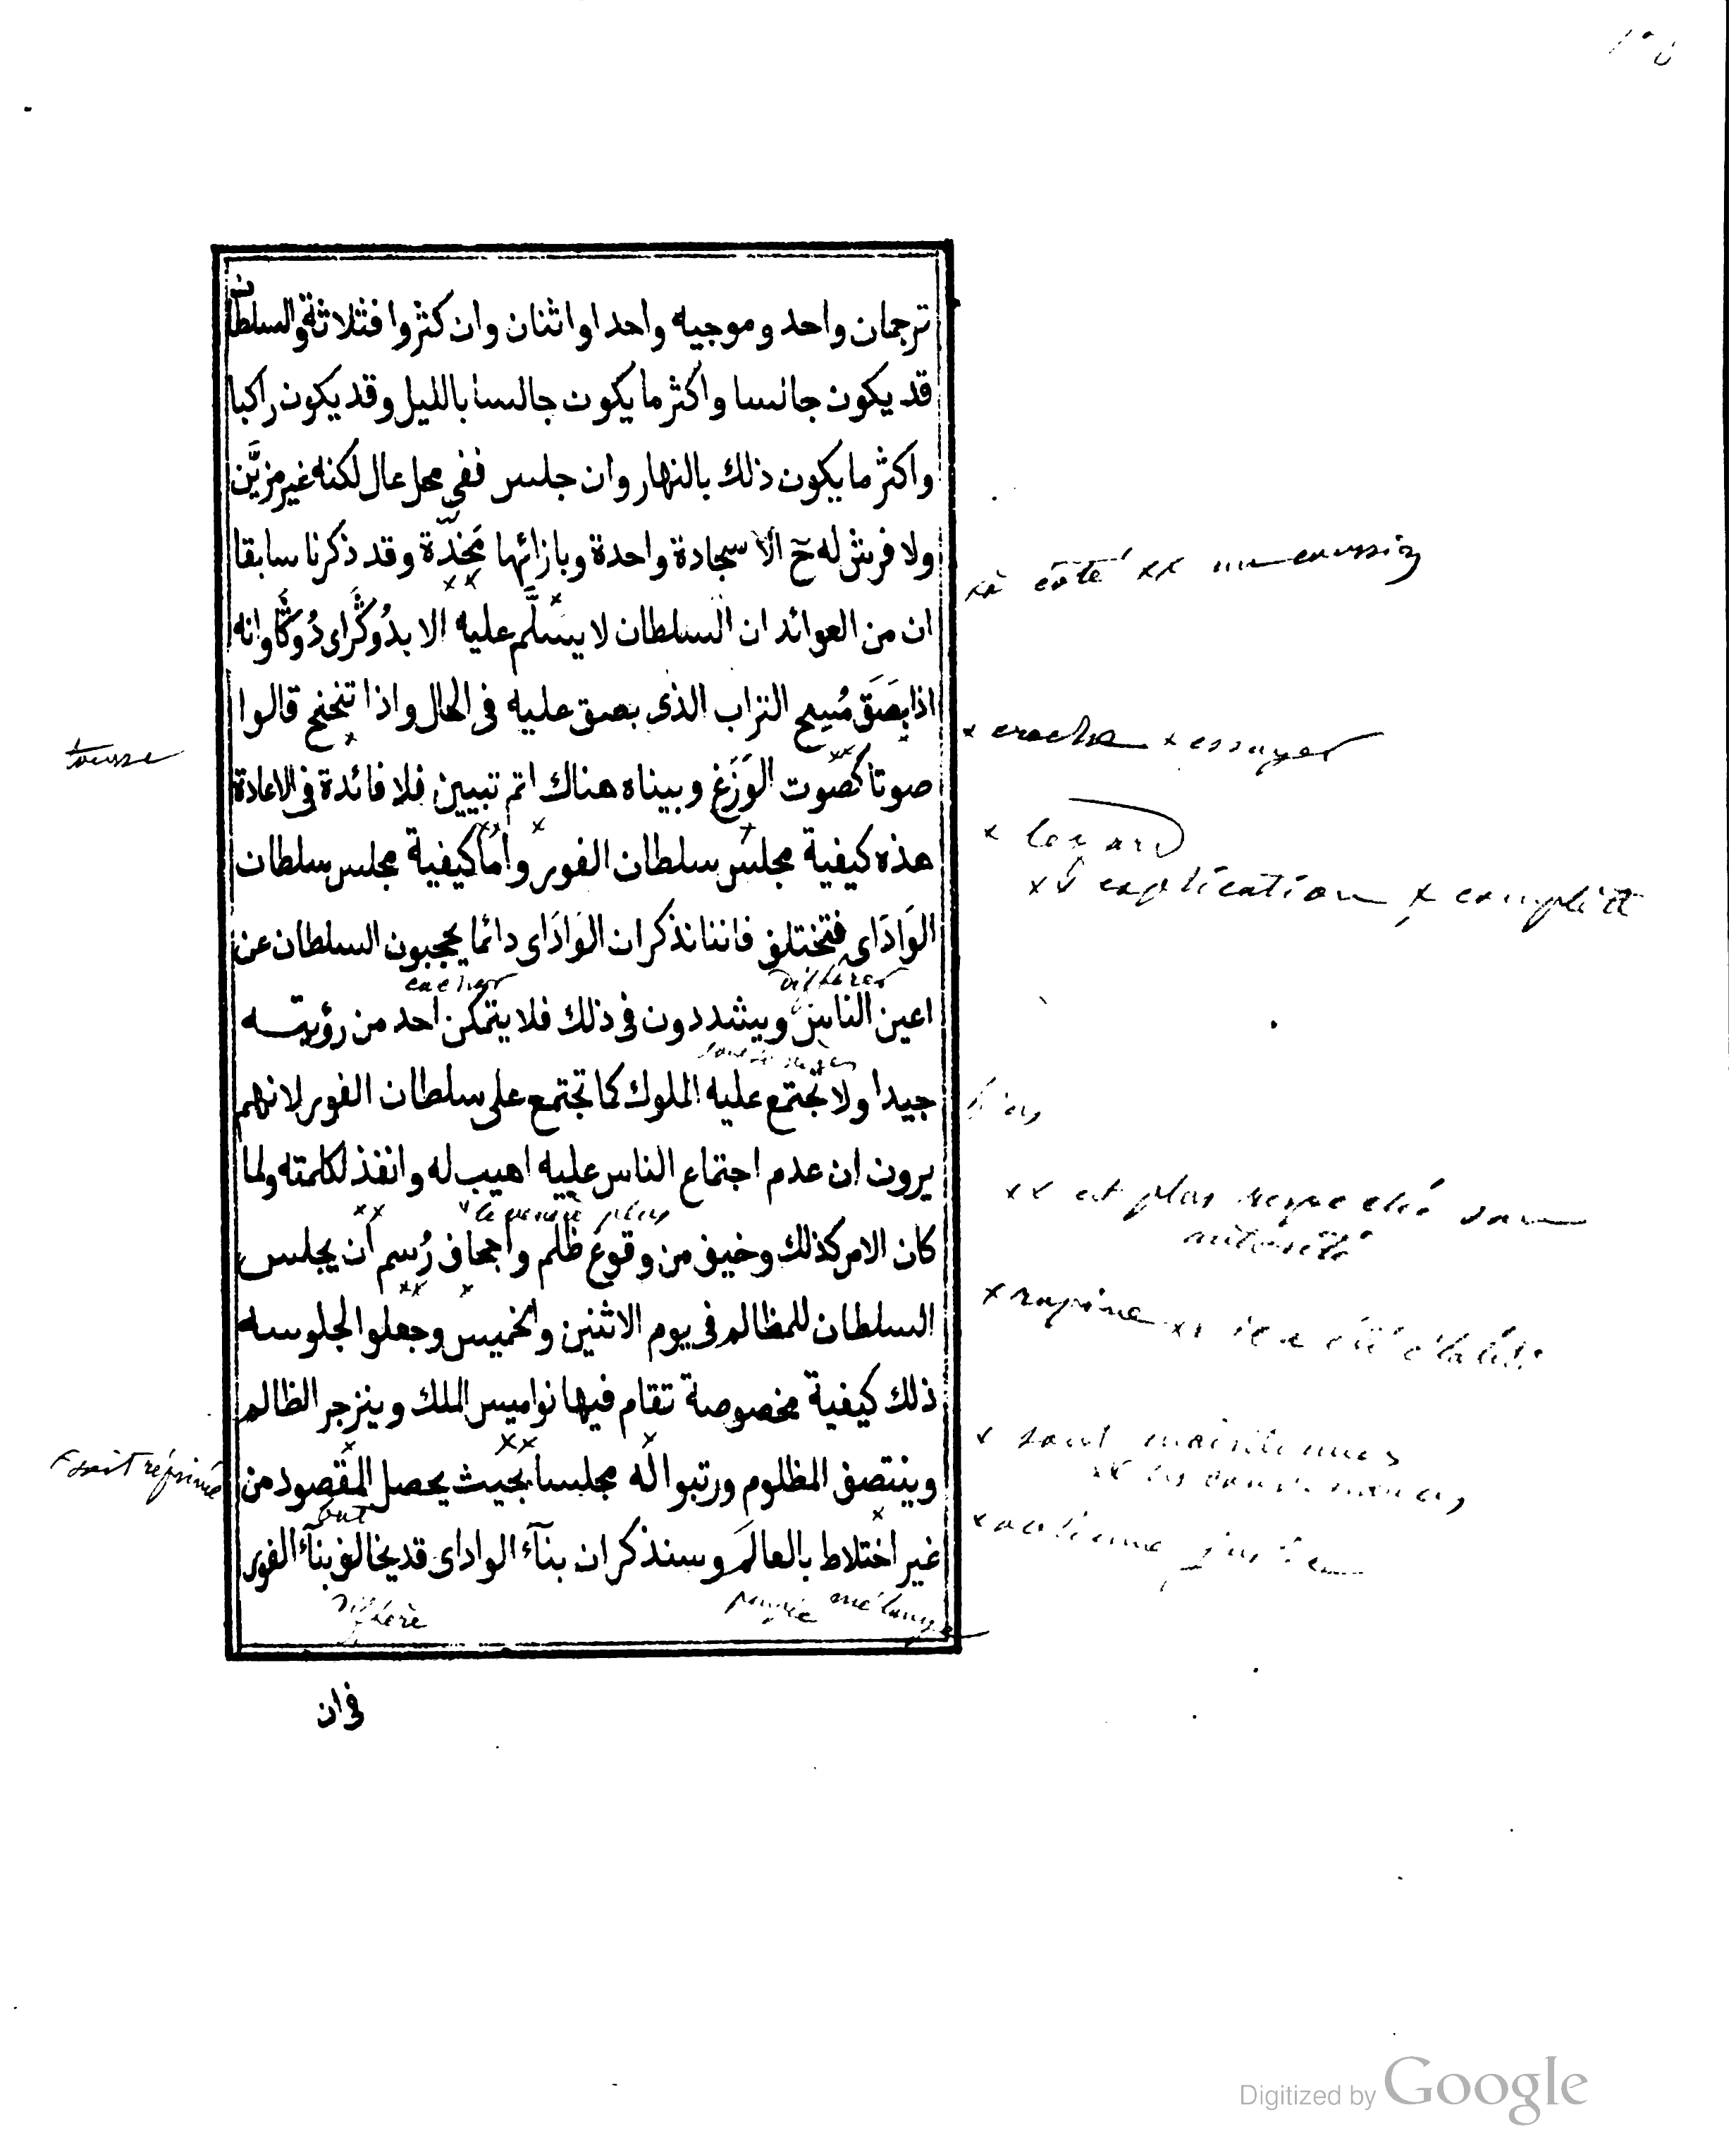 ترجمان واحد وموجيه واحد او اثنان وان كثروا فثلاثة والسلطان
قد يكون جالسا واكثر ما يكون جالسا بالليل وقد يكون راكبا
واكثر ما يكون ذلك بالنهار وان جلس ففي محل عال لكنه غير مزيَّن
ولا فرش له ح الا سجادة واحدة وبازائها مَخدّة وقد ذكرنا سابقا
à côté xx un coussin
ان من العوائد ان السلطان لا يسلَّم عليه الا بدُوكَرَاى دُوكَا وانه
اذا بصَقَ مُسِح التراب الذى بصق عليه فى الحال واذا تنحنح قالوا
x crache x essuyer
tousse
صوتا كصوت الوَزَغ وبيناه هناك اتم تبيين فلا فائدة فى الاعادة
x lézard
xx explication x complète
هذه كيفية مجلس سلطان الفور واما كيفية مجلس سلطان
الوَادَاى فتختلف فاننا نذكر ان الوَادَاى دائما يحجبون السلطان عن
cacher
différer
اعين الناس ويشددون فى ذلك فلا يتمكن احد من رؤيته
جيدا ولا تجتمع عليه الملوك كما تجتمع على سلطان الفور لانهم
يرون ان عدم اجتماع الناس عليه اهيب له وانفذ لكلمته ولما
xx est plus respecté
كان الامر كذلك وخيف من وقوع ظلم واجحاف رُسم ان يجلس
x rapine xx il a été établi
السلطان للمظالم فى يوم الاثنين والخميس وجعلوا لجلوسه
ذلك كيفية مخصوصة تقام فيها نواميس الملك وينزجر الظالم
x sont maintenues
soit réprimé
وينتصف المظلوم ورتبوا له مجلسا بحيث يحصل المقصود من
but
غير اختلاط بالعالَم وسنذكر ان بنآء الواداى قد يخالف بنآء الفور
diffère
mélange
فى ان
Digitized by Google